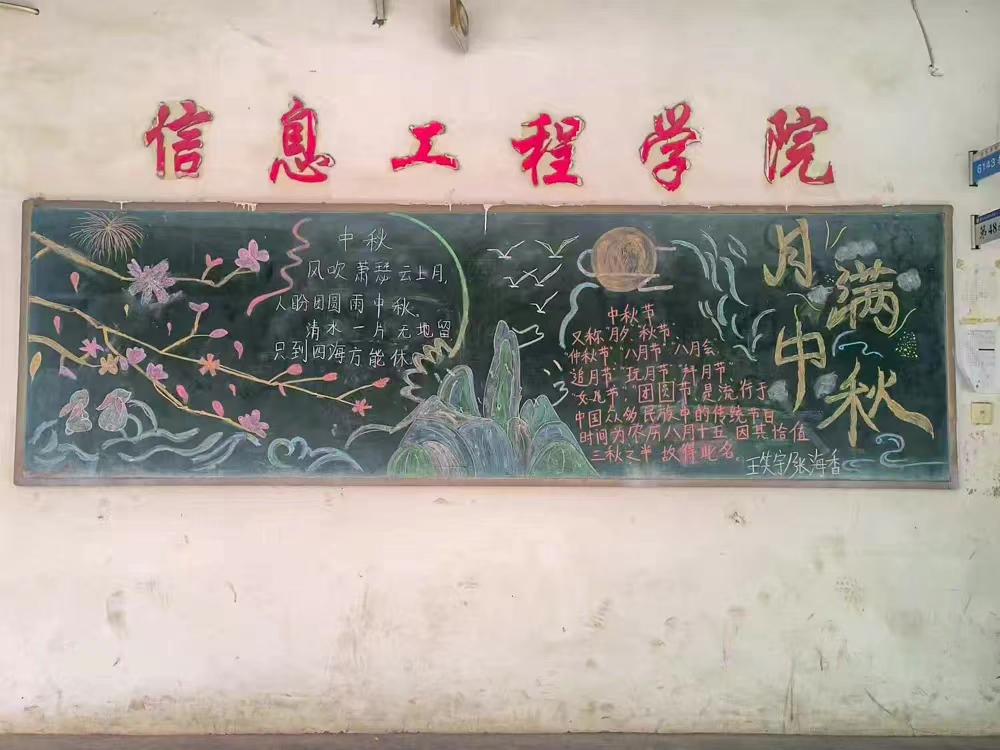 信息工程学院
中秋
风吹萧瑟云上月,
人盼团圆雨中秋.
清水一片无地留
只到四海方能休.
中秋节
又称"月夕""秋节"
"仲秋节""八月节""八月会"
追月节""玩月节""拜月节"
"女儿节""团圆节"是流行于
中国众多民族中的传统节日
时间为农历八月十五 因其恰值
三秋之半 故得此名。
月满
中秋
张海香
6143
第48